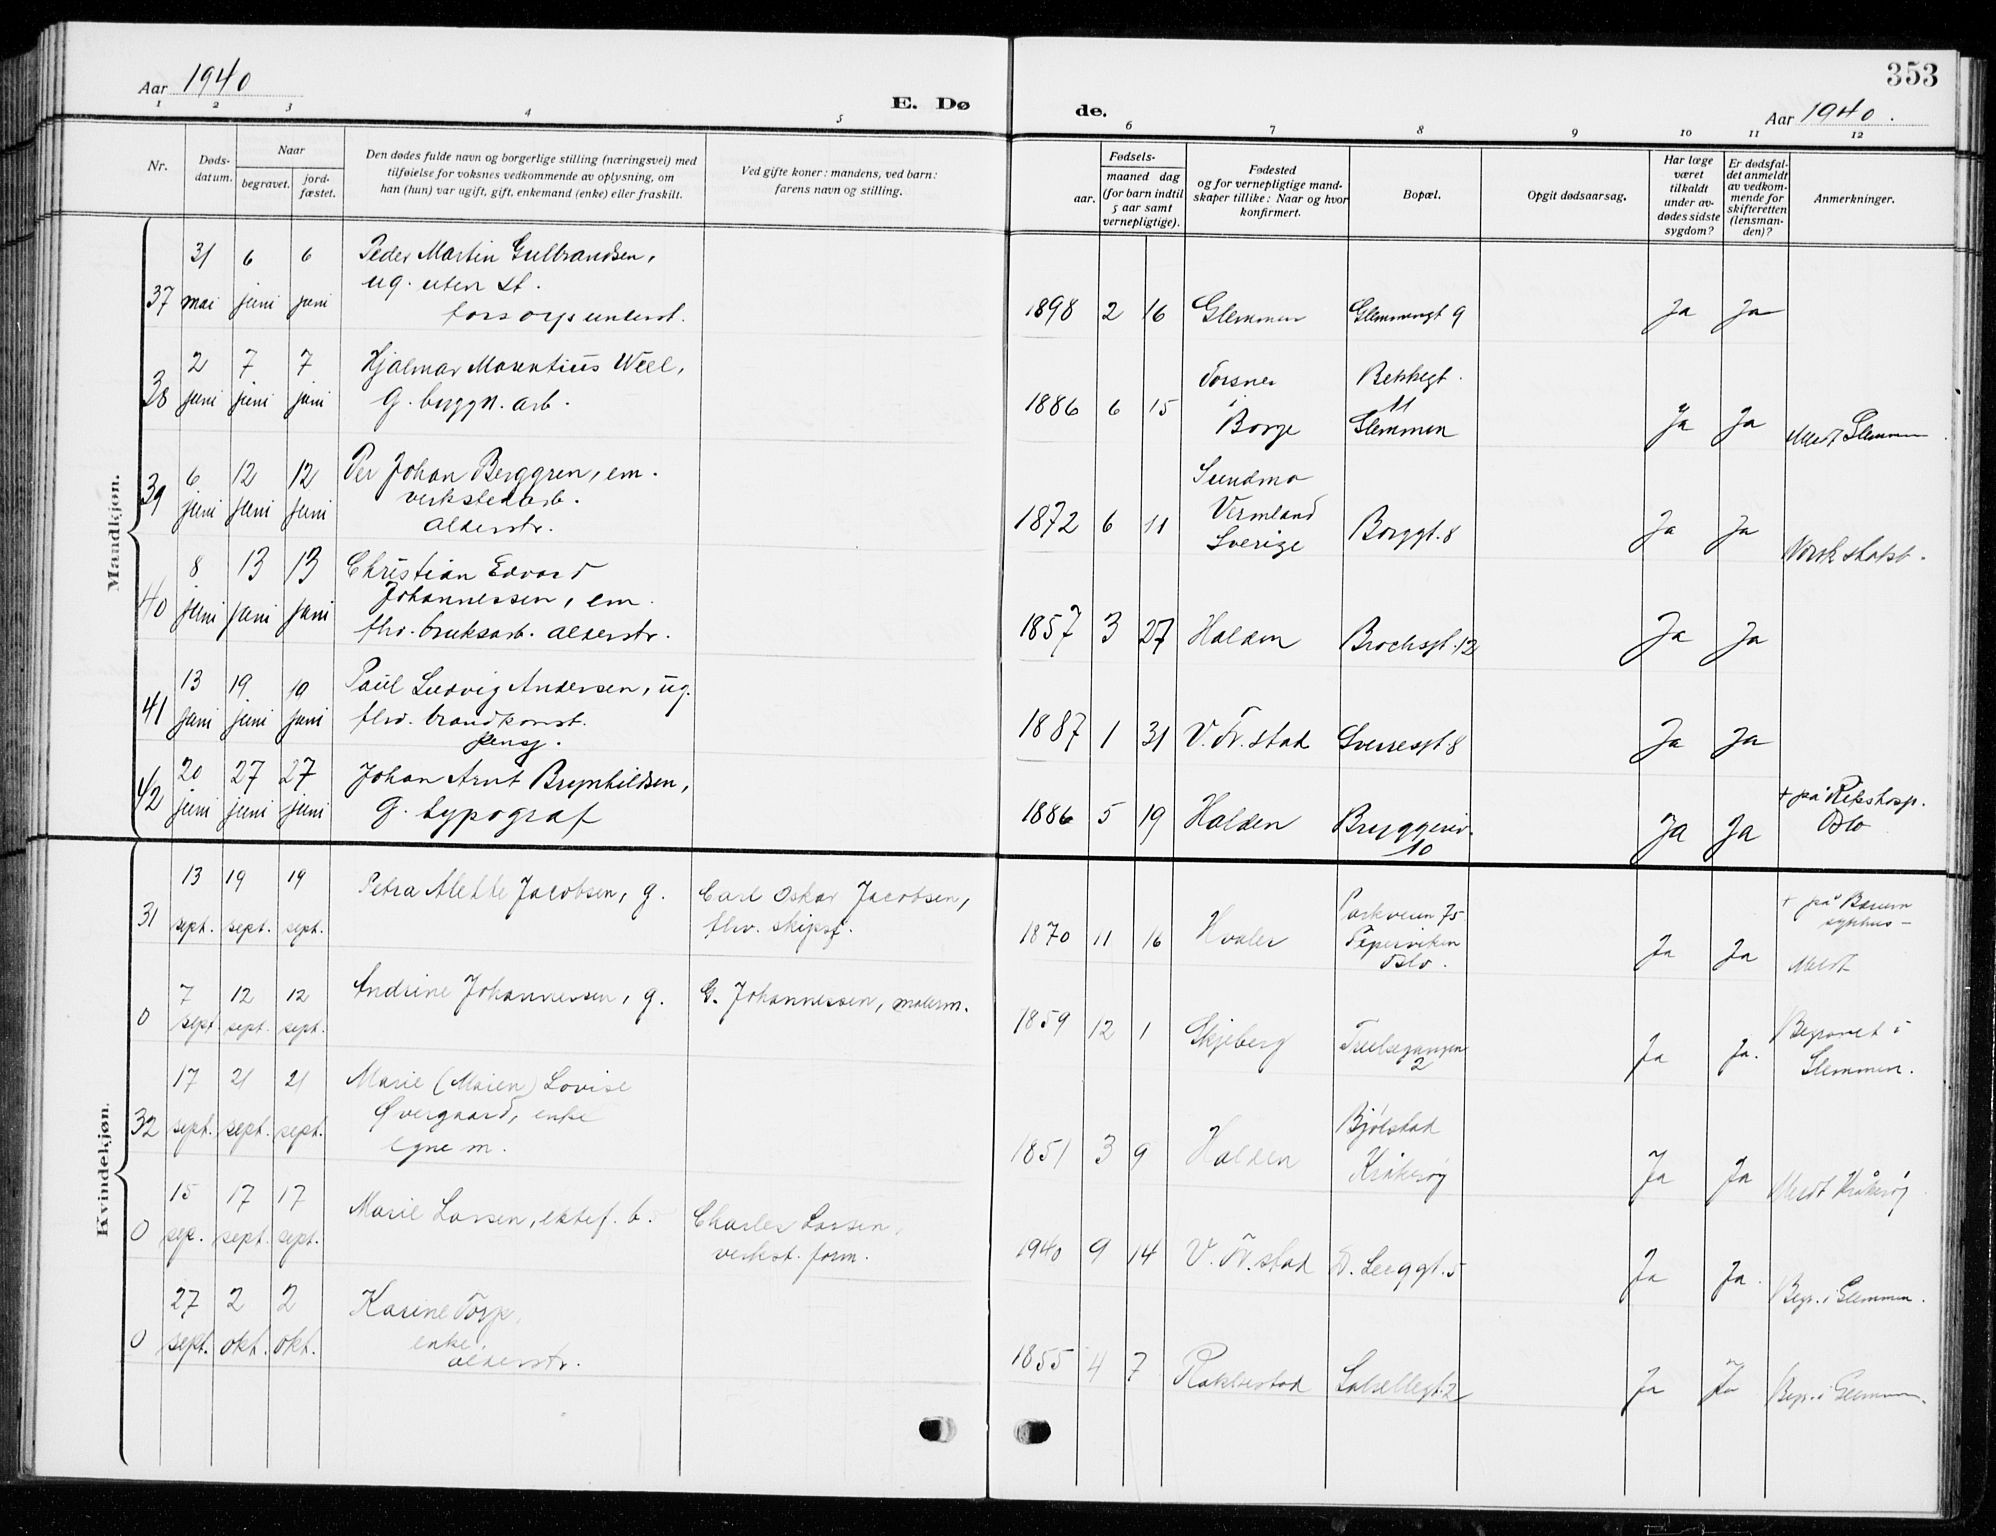 Aar 1940
E. Dø
de.
353
Aar 1940.
1 2 3 4 5 6 7 8 9 10 11 12
Nr.
Døds-
datum.
Naar
begravet.
jord-
fæstet.
Den dødes fulde navn og borgerlige stilling (næringsvei) med
tilføielse for voksnes vedkommende av oplysning, om
han (hun) var ugift, gift, enkemand (enke) eller fraskilt.
Ved gifte koner: mandens, ved barn:
farens navn og stilling.
Fødsels-
aar.
maaned dag
(for barn indtil
5 aar samt
vernepligtige).
Fødested
og for vernepligtige mand-
skaper tillike: Naar og hvor
konfirmert.
Bopæl.
Opgit dødsaarsag.
Har læge
været
tilkaldt
under av-
dødes sidste
sygdom?
Er dødsfal-
det anmeldt
av vedkom-
mende for
skifteretten
(lensman-
den)?
Anmerkninger.
Mandkjøn.
31 6 6 Peder Martin Gulbrandsen,
ug. uten st.
37 mai juni juni forsorgsunderst.
1898 2 16 Glemmen Glemmengt 9 Ja Ja
2 7 7 Hjalmar Mauntius Weel,
38 juni juni juni G. byggn. arb.
Torsnes Bekkegt.
1886 6 15 i 11
Borge Glemmen Ja Ja Medt Glemmen
6 12 12 Per Johan Berggren, em.
39 juni juni juni verkstedarb.
alderstr.
Sundmo
Vermland
1872 6 11 Sverige Borggt. 8 Ja Ja Norsk statsb.
8 13 13 Christian Edvard
40 juni juni juni Johannessen, em.
fhv. bruksarb. alderstr.
1857 3 27 Halden Brochsgt. 12 Ja Ja
13 19 19 Paul Ludvig Andersen, ug.
41 juni juni juni fhv. brandkonst.
pensj.
1887 1 31 V. Fr.stad Sverresgt. 8 Ja Ja
20 27 27 Johan Arnt Brynhildsen,
42 juni juni juni G. typograf
1886 5 19 Halden Bryggeriv. 10 Ja Ja + på Rikshosp.
Oslo
Kvindekjøn.
13 19 19 Petra Alette Jacobsen, g. Carl Oskar Jacobsen,
31 sept. sept. sept. fhv. skipsf.
1870 11 16 Hvaler Parkveien 75
Piperviken
Oslo. Ja Ja + på Bærum
sykhus -
Meldt
7 12 12 Andrine Johannessen, g. G. Johannessen, malerm.
0 sept. sept. sept.
1859 12 1 Skjeberg Truelsegangen
2 Ja Ja. Begravet i
Glemmen.
17 21 21 Marie (Maien) Lovise
32 sept. sept. sept. Øvergaard, enke
egne m.
1851 3 9 Halden Bjølstad
Kråkerøy Ja Ja Meldt Kråkerøy
15 17 17 Marie Larsen, ektef. b. Charles Larsen,
0 sep. sept. sept. verkst. form.
1940 9 14 V. Fr.stad D. Leeggt. 5 Ja Ja. Begr. i Glemmen.
27 2 2 Karine Torp,
0 sept. okt. okt. enke,
alderstr.
1855 4 7 Rakkestad Labellegt. 2 Ja Ja Begr. i Glemmen.